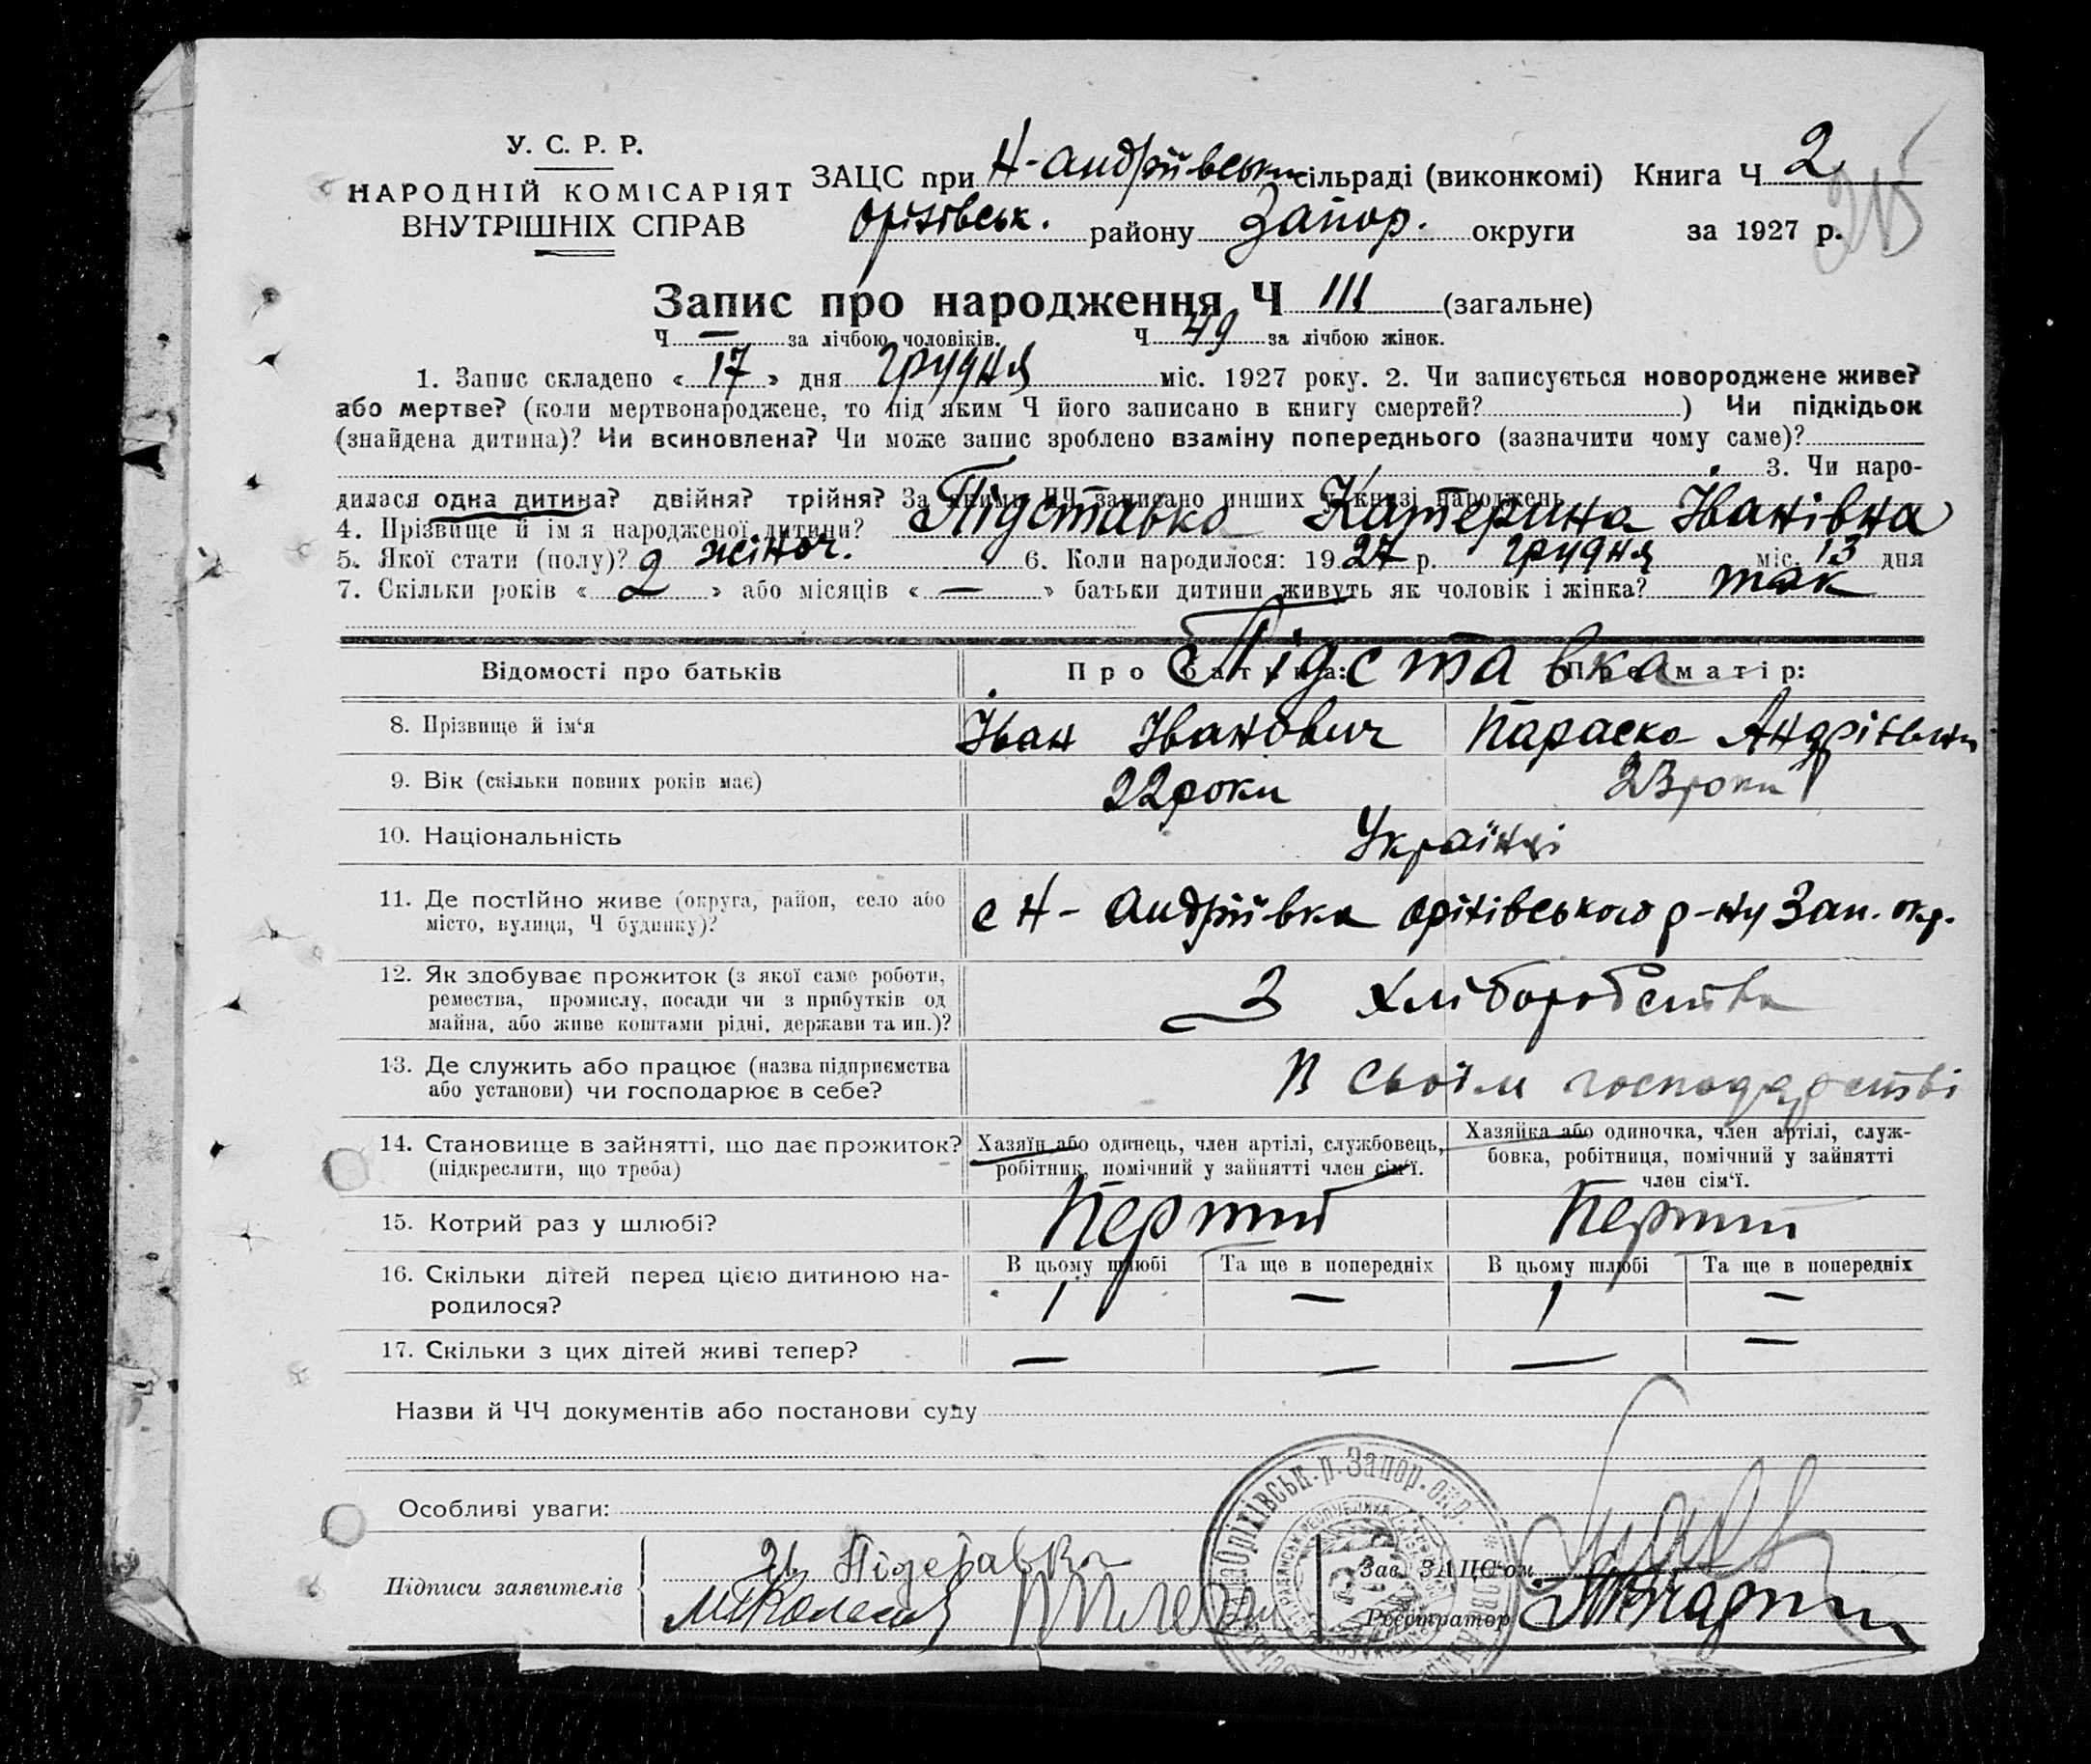 У. С. Р. Р.
НАРОДНІЙ КОМІСАРІЯТ
ВНУТРІШНІХ СПРАВ
ЗАЦС при Н-Андріївській сільраді (виконкомі) Книга Ч 2
Оріхівськ. району Запор. округи за 1927 р.
215
Запис про народження Ч 111 (загальне)
Ч — за лічбою чоловіків. Ч 49 за лічбою жінок.
1. Запис складено « 17 » дня грудня міс. 1927 року. 2. Чи записується новороджене живе?
або мертве? (коли мертвонароджене, то під яким Ч його записано в книгу смертей? ) Чи підкідьок
(знайдена дитина)? Чи всиновлена? Чи може запис зроблено взаміну попереднього (зазначити чому саме)?
3. Чи наро-
дилася одна дитина? двійня? трійня? За якими ЧЧ записано инших у книзі народжень
4. Прізвище й ім'я народженої дитини? Підставка Катерина Іванівна
5. Якої стати (полу)? жіноч. 6. Коли народилося: 1927 р. грудня міс. 13 дня
7. Скільки років « 2 » або місяців « — » батьки дитини живуть як чоловік і жінка? так
Відомості про батьків Про батька: Про матір:
Підставка
8. Прізвище й ім'я Іван Іванович Параска Андріївна
9. Вік (скільки повних років має) 22 роки 23 роки
10. Національність Українці
11. Де постійно живе (округа, район, село або
місто, вулиця, Ч будинку)? с Н-Андріївка Оріхівського р-ну Зап. окр.
12. Як здобуває прожиток (з якої саме роботи,
ремества, промислу, посади чи з прибутків од
майна, або живе коштами рідні, держави та ин.)? З хліборобства
13. Де служить або працює (назва підприємства
або установи) чи господарює в себе? В своїм господарстві
14. Становище в зайнятті, що дає прожиток?
(підкреслити, що треба)
Хазяїн або одинець, член артілі, службовець,
робітник, помічний у зайнятті член сім'ї.
Хазяйка або одиночка, член артілі, служ-
бовка, робітниця, помічний у зайнятті
член сім'ї.
15. Котрий раз у шлюбі? Перший Перший
16. Скільки дітей перед цією дитиною на-
родилося?
В цьому шлюбі Та ще в попередніх В цьому шлюбі Та ще в попередніх
1 — 1 —
17. Скільки з цих дітей живі тепер? — — — —
Назви й ЧЧ документів або постанови суду
Особливі уваги:
Підписи заявителів
Ив. Підставка
Зав. ЗАЦС'ом
Реєстратор
Оріхівськ. р. Запор. окр.